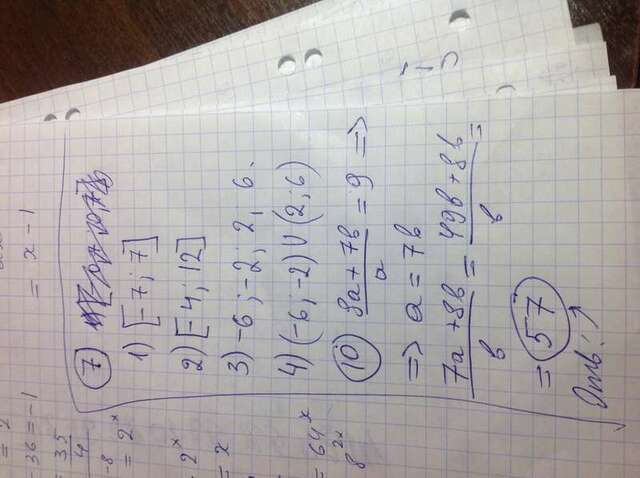 = 2
-36 = -1
= x - 1
= 35/4
-8
= 2^x
2^x
= x
= 64^x
8^2x
⑦
1) [-7; 7]
2) [-4; 12]
3) -6; -2; 2, 6.
4) (-6; -2) U (2; 6)
⑩ (8a + 7b)/a = 9 =>
=> a = 7b
(7a + 8b)/b = (49b + 8b)/b =
= 57
Отв: